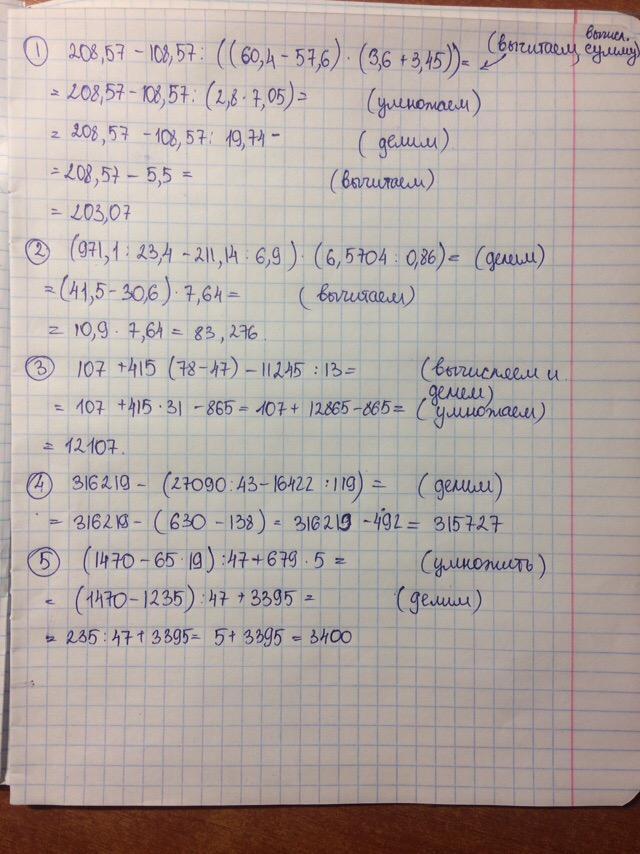 ① 208,57 - 108,57 : ((60,4 - 57,6) · (3,6 + 3,45)) = (вычитаем, вычисл. сумму)
= 208,57 - 108,57 : (2,8 · 7,05) = (умножаем)
= 208,57 - 108,57 : 19,74 = (делим)
= 208,57 - 5,5 = (вычитаем)
= 203,07
② (971,1 : 23,4 - 211,14 : 6,9) · (6,5704 : 0,86) = (делим)
= (41,5 - 30,6) · 7,64 = (вычитаем)
= 10,9 · 7,64 = 83,276.
③ 107 + 415 (78 - 47) - 11245 : 13 = (вычисляем и делем)
= 107 + 415 · 31 - 865 = 107 + 12865 - 865 = (умножаем)
= 12107.
④ 316219 - (27090 : 43 - 16422 : 119) = (делим)
= 316219 - (630 - 138) = 316219 - 492 = 315727
⑤ (1470 - 65 · 19) : 47 + 679 · 5 = (умножить)
= (1470 - 1235) : 47 + 3395 = (делим)
= 235 : 47 + 3395 = 5 + 3395 = 3400